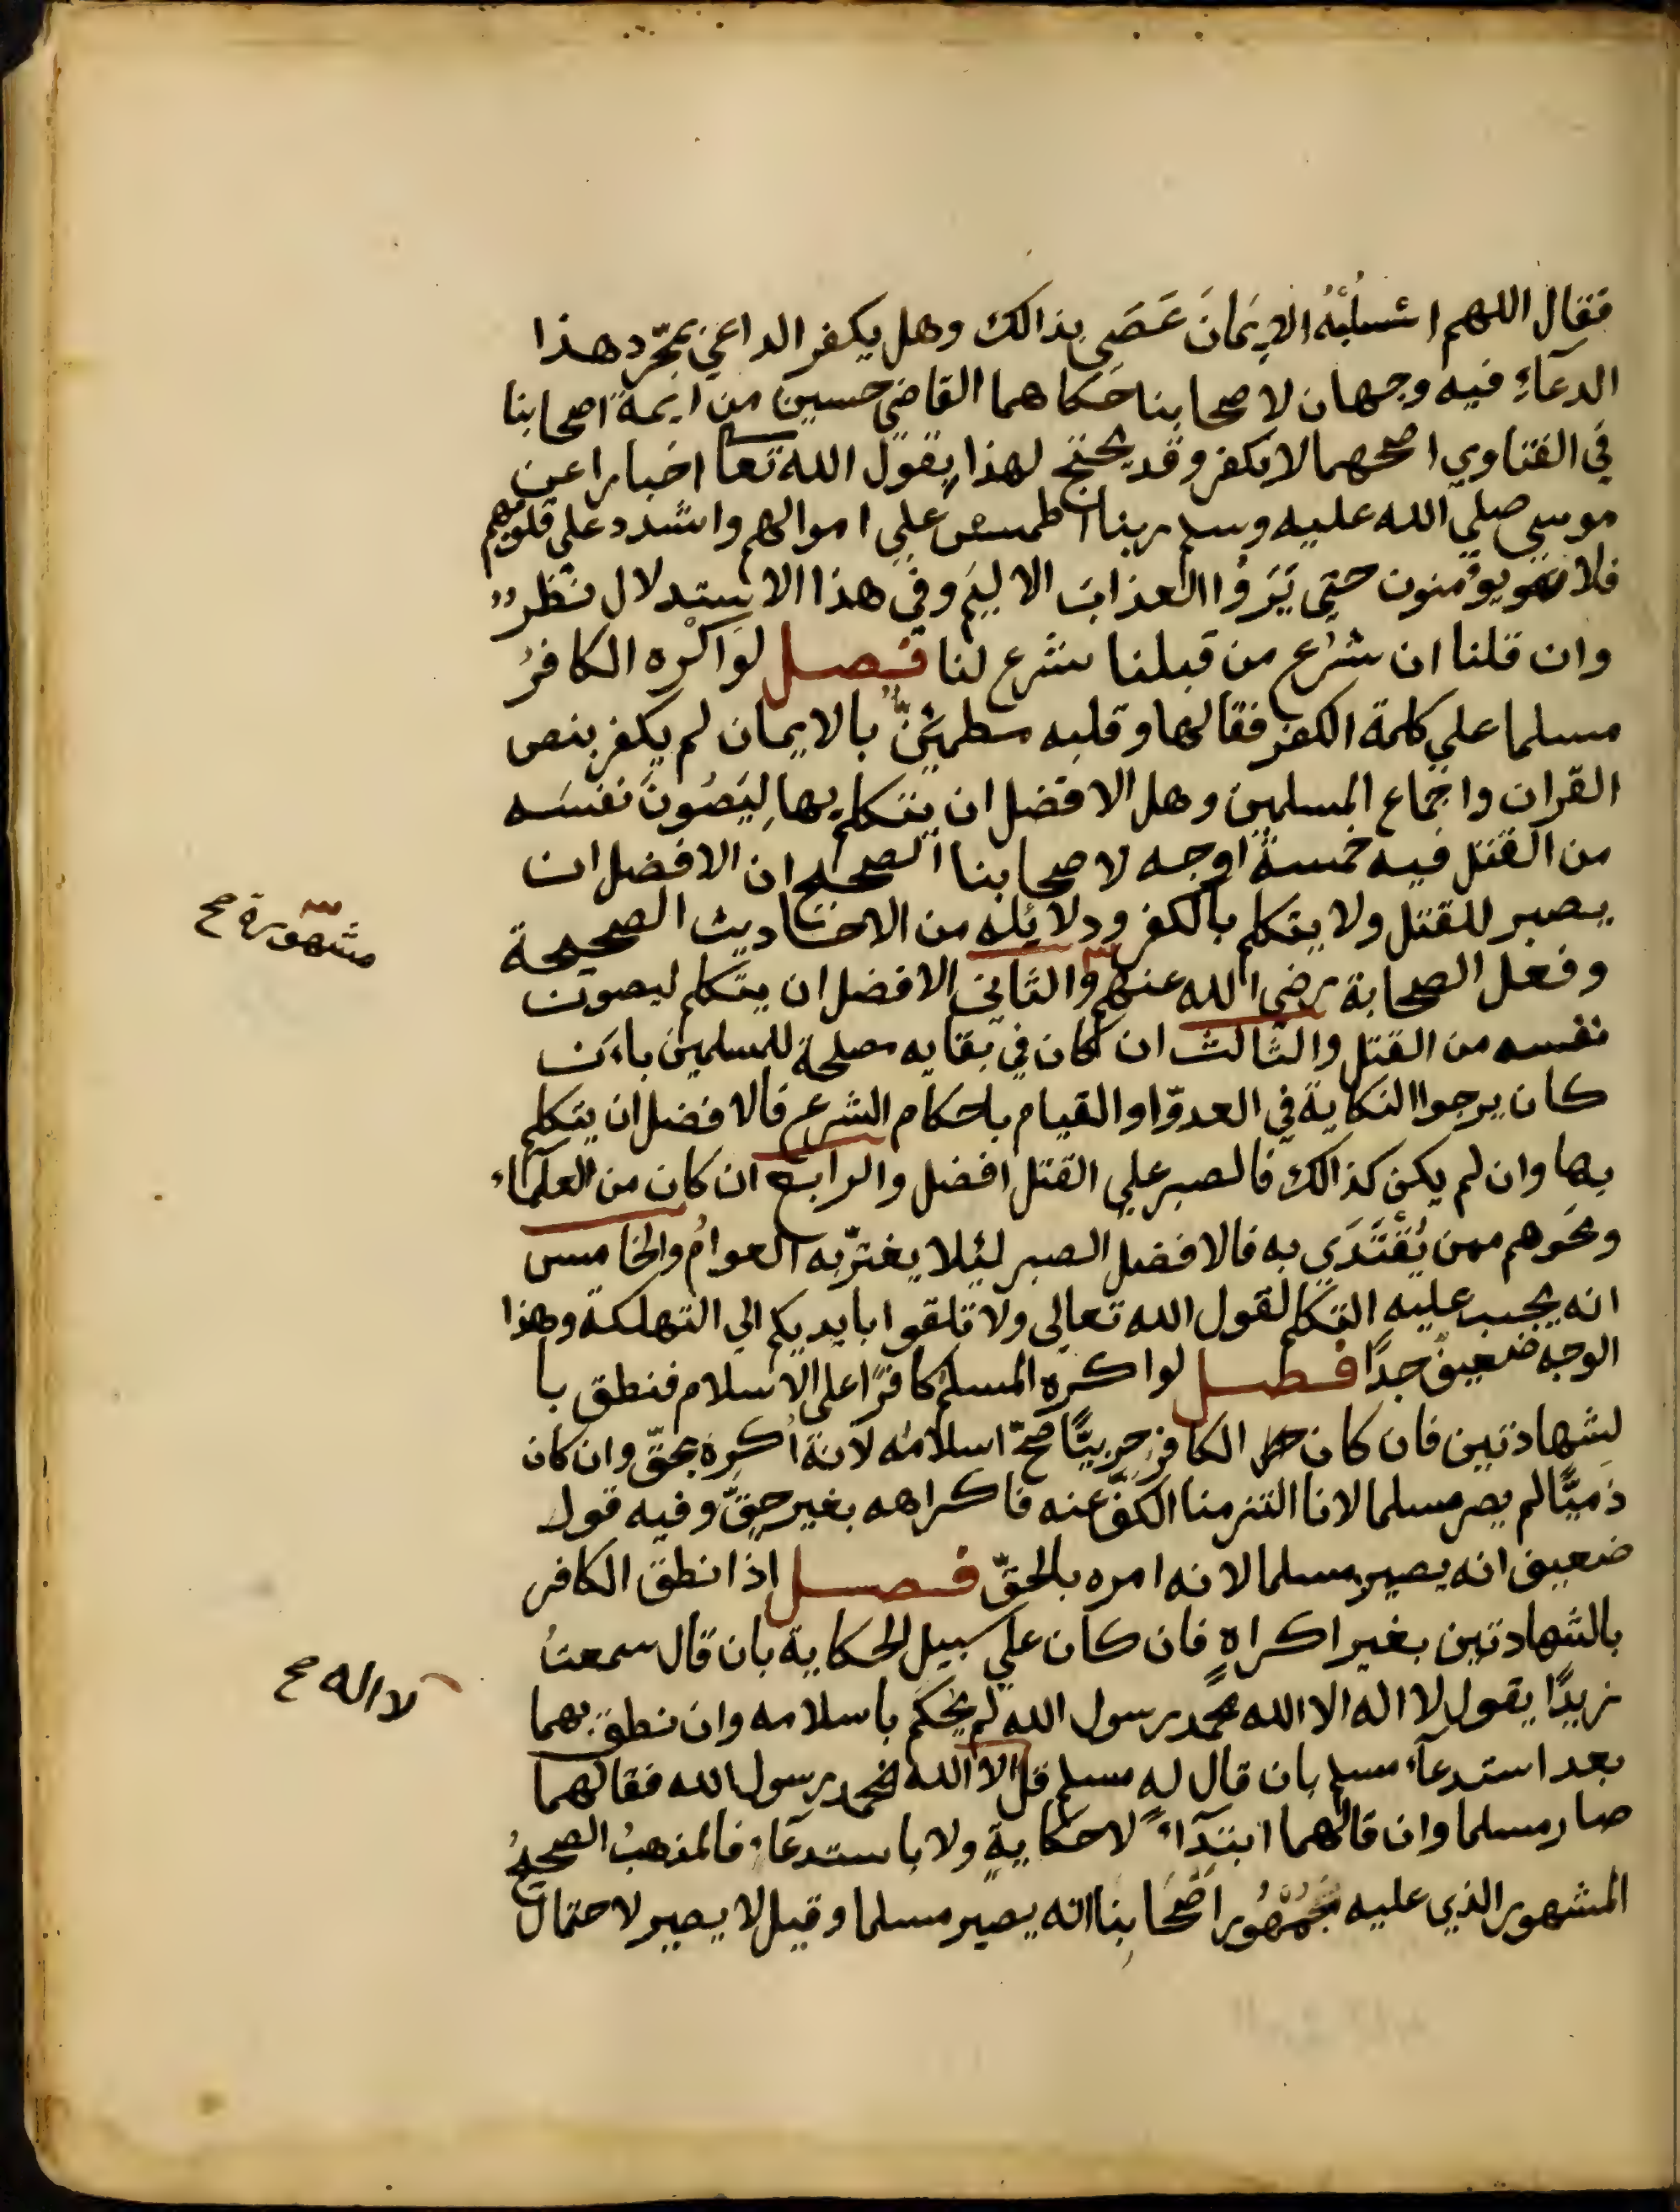 فقال اللهم اسْلُبْهُ الاِيمَانَ عَصَي بذالك وهل يكفر الداعي بمجرّد هذا
الدعآءِ فيه وجهان لاصحابنا حَكاهما القاضي حسين من ايمة اصحابنا
في الفتاوي اصحهما لا يكفر وقد يحتج لهذا بقول الله تعا اخبارا عن
موسي صلي الله عليه وسلم ربنا اطمس علي اموالهم واشدد علي قلوبهم
فلا يؤمنون حتي يَرَوُا العذابَ الاليمَ وفي هذا الاستدلال نظر
وان قلنا ان شرع من قبلنا شرع لنا فصل لو اكْره الكافرُ
مسلما علي كلمة الكفر فقالها وقلبه مطمئنٌّ بالايمان لم يكفر بنص
القران واجماع المسلمين وهل الافضل ان يتكلم بها لِيَصُونَ نفسَه
من القتل فيه خمسةُ اوجه لاصحابنا الصحيح ان الافضل ان
يصبر للقتل ولا يتكلم بالكفر ودلايله من الاحاديث الصحيحة
وفعل الصحابة رضي الله عنهم والثاني الافضل ان يتكلم ليصون
مشهورة صح
نفسه من القتل والثالث ان كان في بقايه مصلحة للمسلمين بان
كان يرجوا النكاية في العدوّ او القيام باحكام الشرع فالافضل ان يتكلم
بها وان لم يكن كذالك فالصبر علي القتل افضل والرابع ان كان من العلمآء
ونحوهم ممن يُقْتَدَي به فالافضل الصبر ليلا يغترّ به العوامُ والخامس
انه يجب عليه التكلم لقول الله تعالي ولا تلقوا بايديكم الي التهلكة وهذا
الوجه ضعيفٌ جدًا فصل لو اكره المسلم كافرًا علي الاسلام فنطق با
لشهادتين فان كان الكافر حربيًّا صحّ اسلامُه لانهُ اُكرِهَ بحقّ وان كان
ذميًّا لم يصر مسلما لانا التزمنا الكفّ عنه فاكراهه بغير حقّ وفيه قول
ضعيف انه يصير مسلما لانه امره بالحقّ فصل اذا نطق الكافر
بالشهادتين بغير اكراهٍ فان كان علي سبيل الحكاية بان قال سمعتُ
زيدًا يقول لا اله الا الله محمد رسول الله لم يحكم باسلامه وان نطق بهما
لا اله صح
بعد استدعآء مسلم بان قال له مسلم قل الا الله محمد رسول الله فقالهما
صار مسلما وان قالهما ابتدآءً لا حكايةٍ ولا باستدعآءٍ فالمذهبُ الصحيحُ
المشهور الذي عليه جُمْهُور اَصْحَابِنا انه يصير مسلما وقيل لا يصير لاحتمال